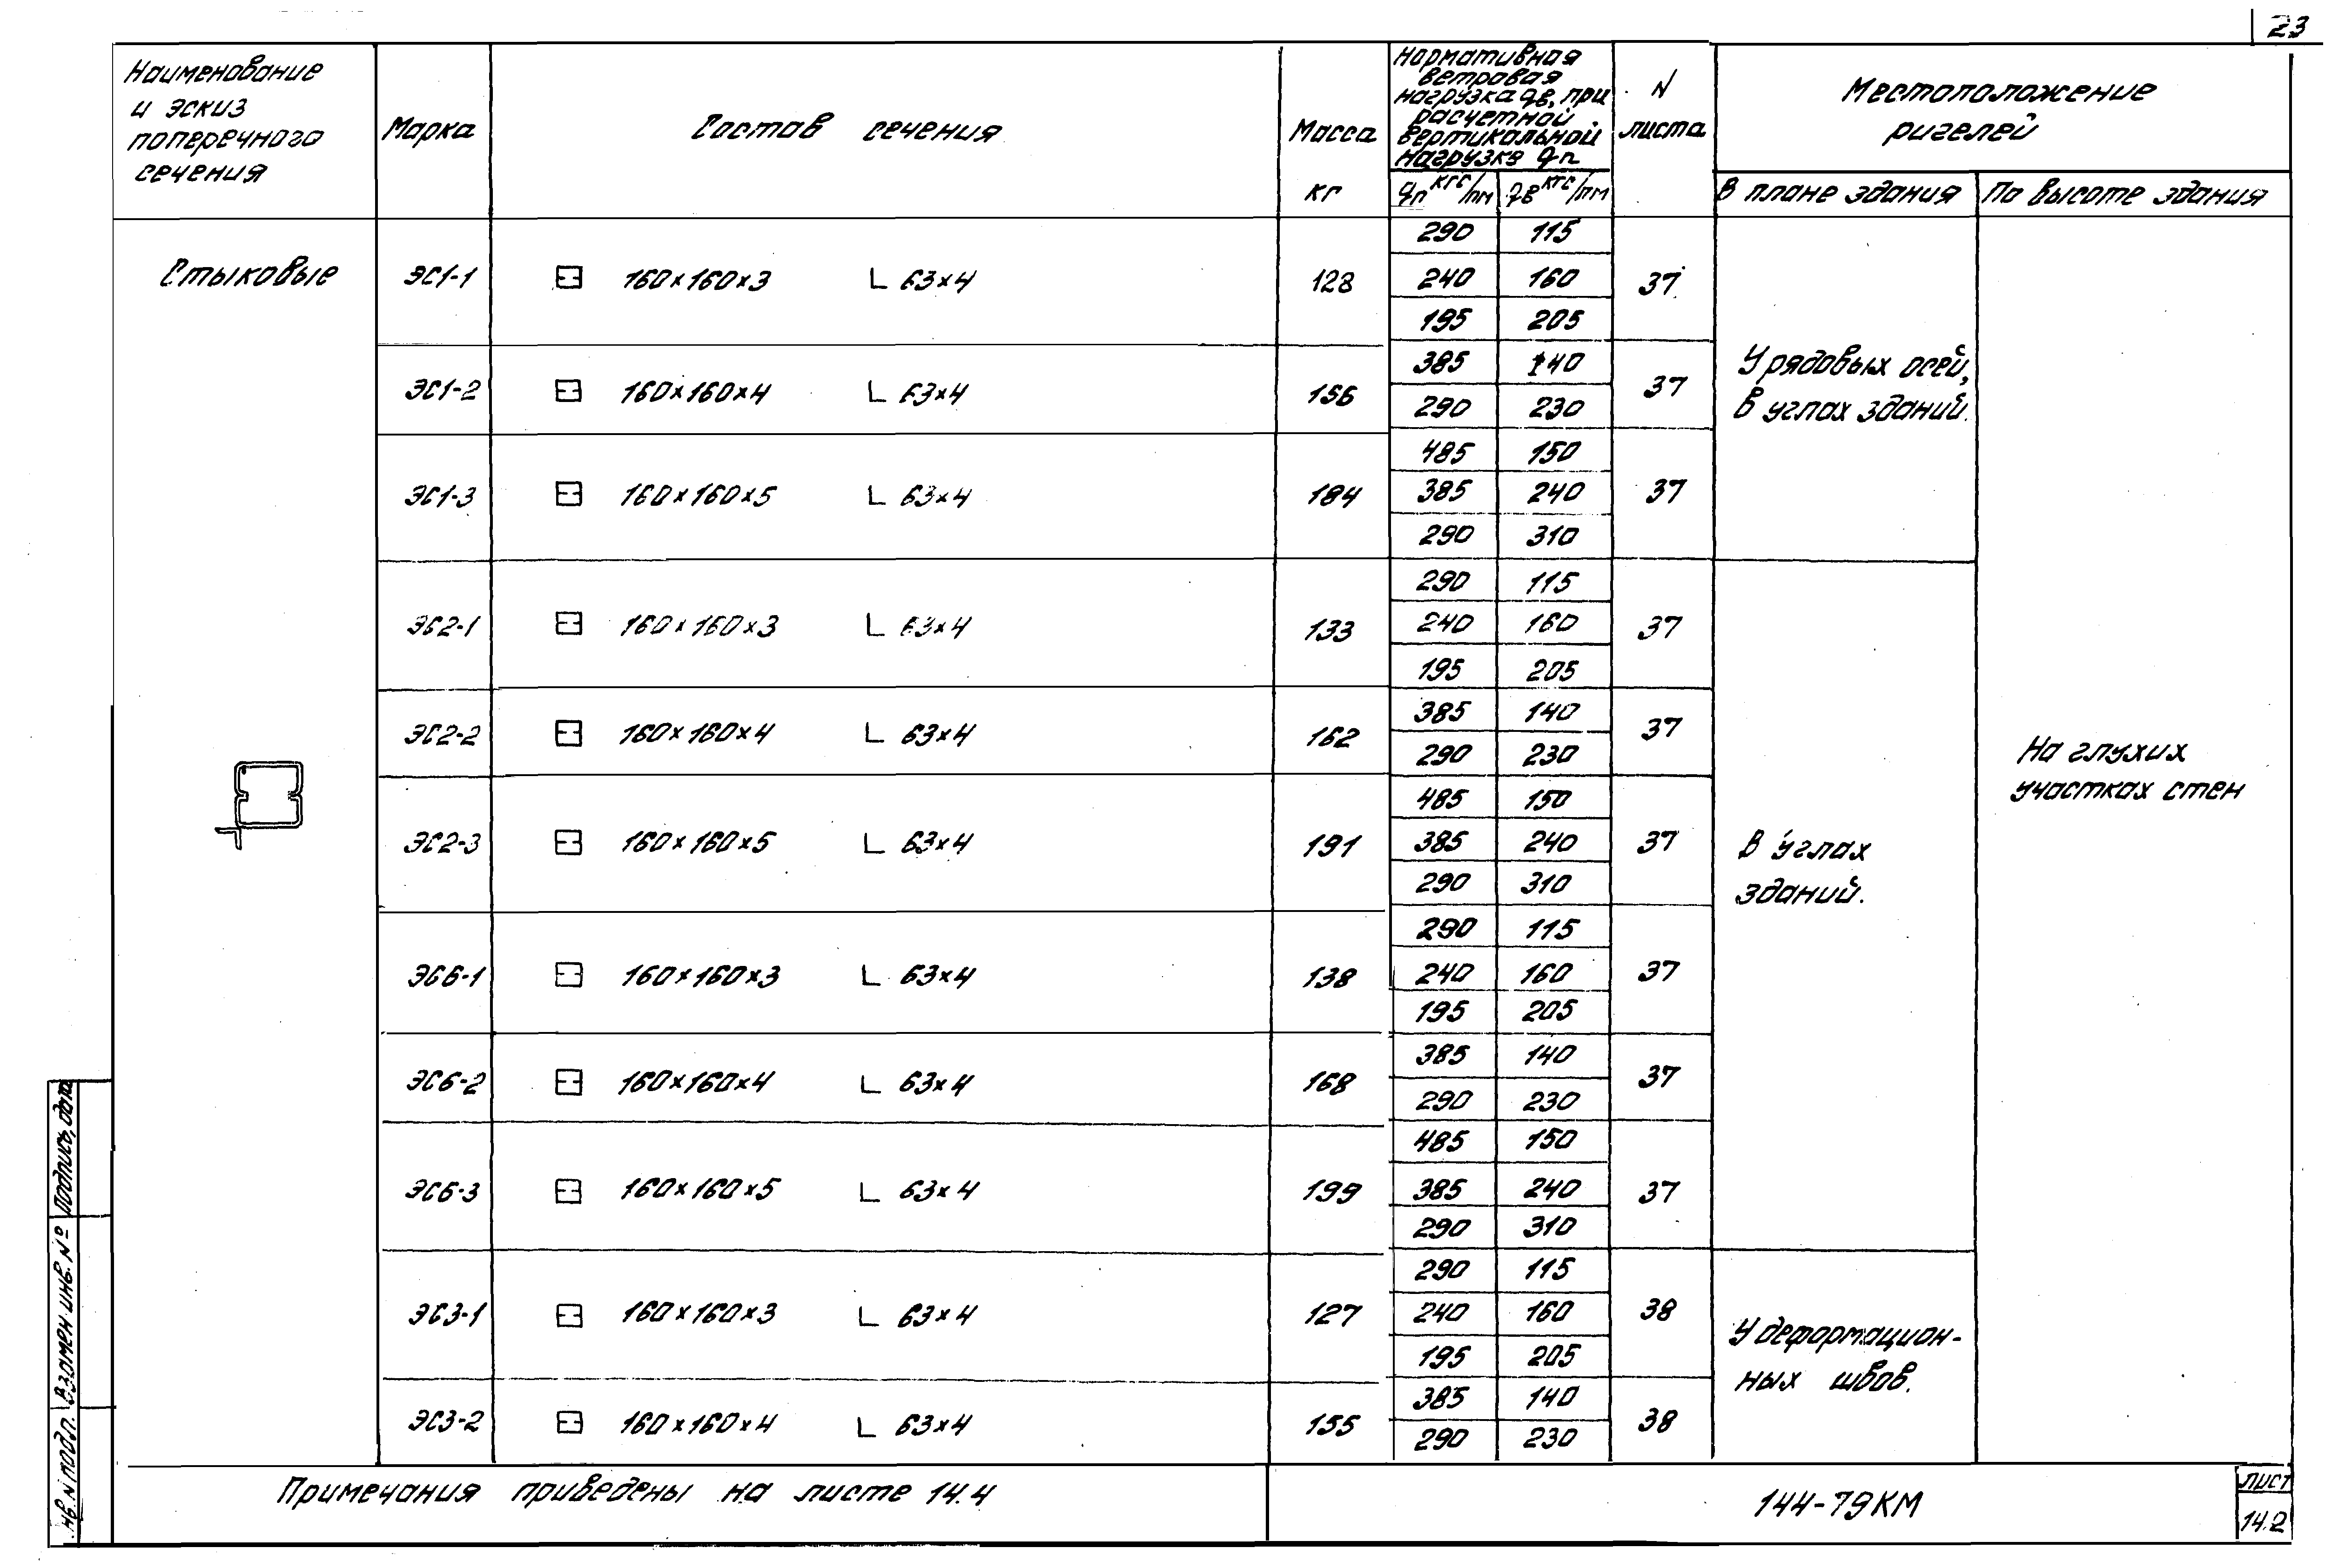 23
Наименование
и эскиз
поперечного
сечения
Марка
Состав сечения
Масса
кг
Нормативная
ветровая
нагрузка qв, при
расчетной
вертикальной
нагрузке qп
qп кгс/пм
qв кгс/пм
N
листа
Местоположение
ригелей
В плане здания
По высоте здания
Стыковые
ЭС1-1 160×160×3 L 63×4 128 37
290 115
240 160
195 205
ЭС1-2 160×160×4 L 63×4 156 37
385 140
290 230
У рядовых осей,
в углах зданий.
ЭС1-3 160×160×5 L 63×4 184 37
485 150
385 240
290 310
ЭС2-1 160×160×3 L 63×4 133 37
290 115
240 160
195 205
ЭС2-2 160×160×4 L 63×4 162 37
385 140
290 230
На глухих
участках стен
ЭС2-3 160×160×5 L 63×4 191 37
485 150
385 240
290 310
В углах
зданий.
ЭС6-1 160×160×3 L 63×4 138 37
290 115
240 160
195 205
ЭС6-2 160×160×4 L 63×4 168 37
385 140
290 230
ЭС6-3 160×160×5 L 63×4 199 37
485 150
385 240
290 310
ЭС3-1 160×160×3 L 63×4 127 38
290 115
240 160
195 205
У деформацион-
ных швов.
ЭС3-2 160×160×4 L 63×4 155 38
385 140
290 230
Примечания приведены на листе 14.4
144-79КМ
лист
14.2
Подпись, дата
Взамен инв. №
Инв. N подл.